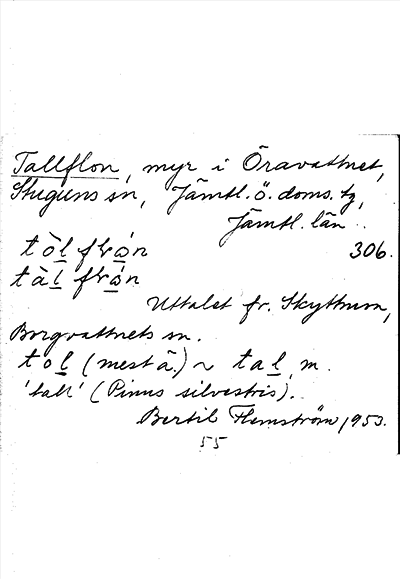 Tallflon, myr i Öravattnet,
Stuguns sn, Jämtl. ö. doms. tg,
Jämtl. län.
tòl från 306.
tàl från
Uttalet fr. Skyttmon,
Borgvattnets sn.
tol (mest ä.) ~ tal, m.
'tall' (Pinus silvestris).
Bertil Flemström, 1953.
55